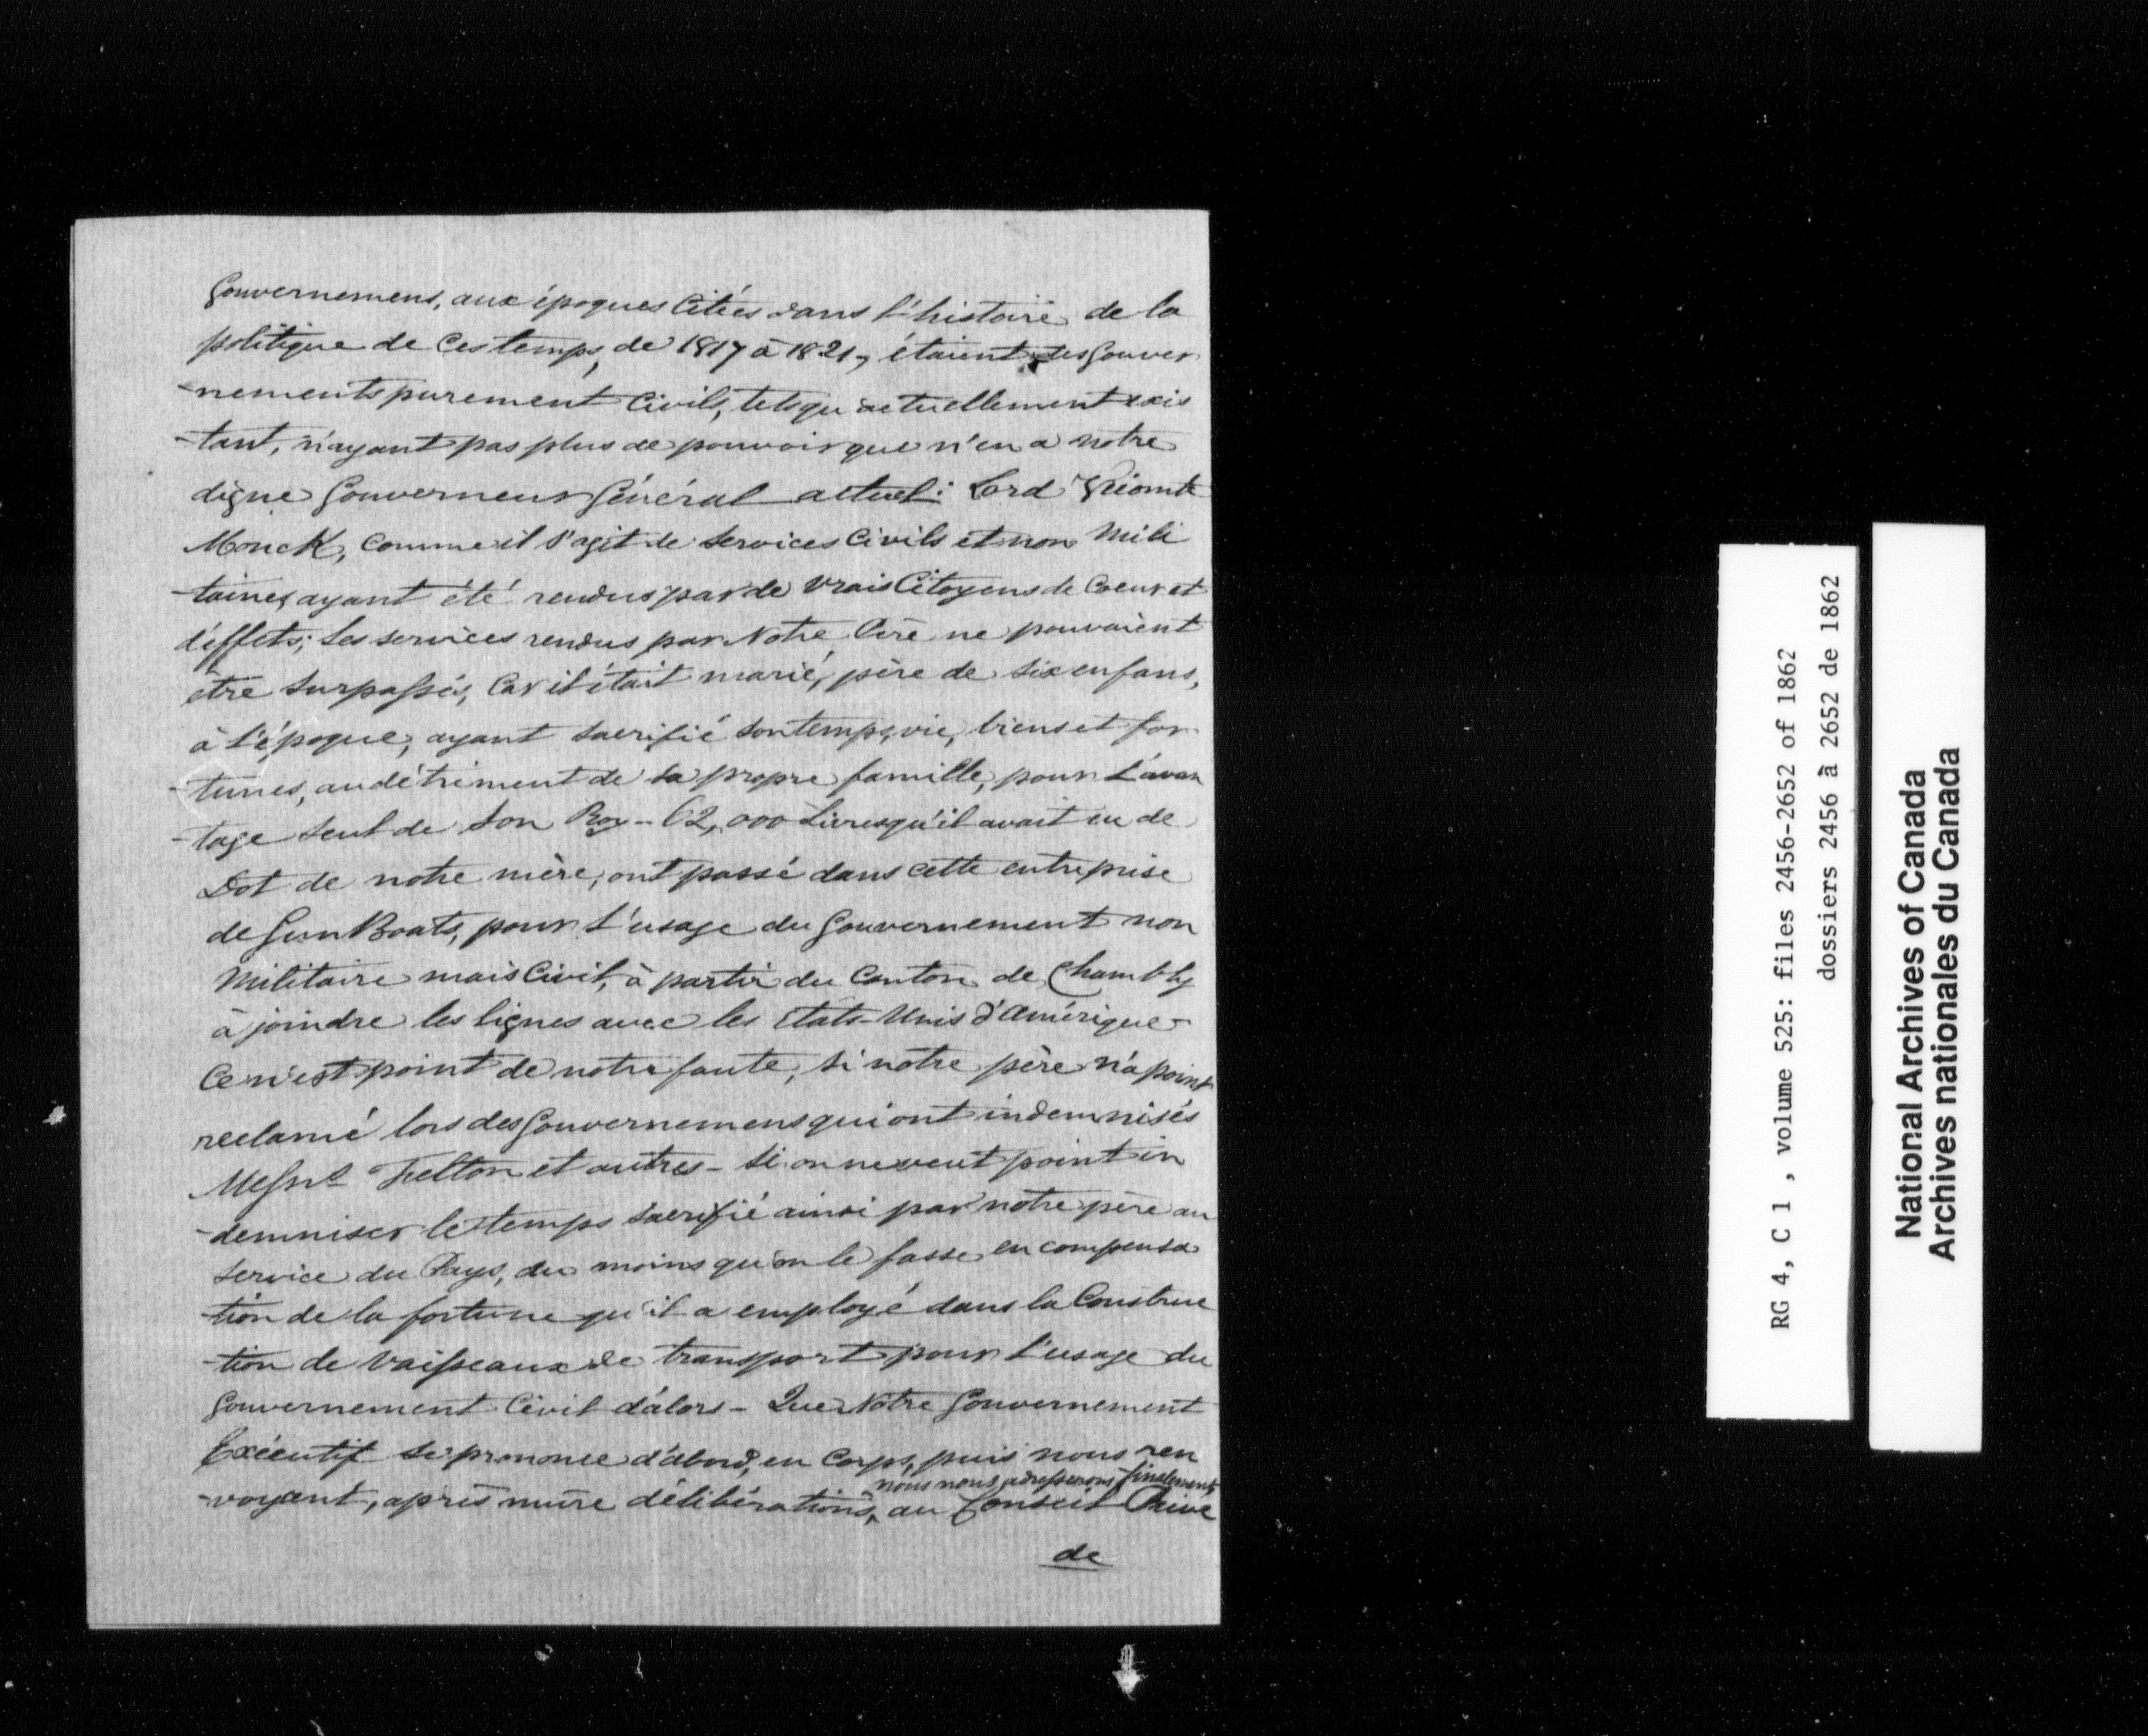 Gouvernemens, aux époques Citées dans l'histoire de la
politique de Ces temps, de 1817 à 1821, étaient des Gouver
-nements purement Civils, tels qu'actuellement exis
-tant, n'ayant pas plus de pouvoir que n'en a notre
digne Gouverneur Général actuel: Lord Vicomte
Monck, Comme il s'agit de Services Civils et non Mili
-taires, ayant été rendus par de Vrais Citoyens de Coeur et
d'éffets; Les services rendus par Notre Père ne pouvaient
être Surpassés, Car il était marié, père de six enfans,
à l'époque, ayant sacrifié son temps, vie, biens et for
-tunes, au détriment de sa propre famille, pour l'avan
-tage Seul de Son Roy - 62,000 Livres qu'il avait eu de
Dot de notre mère, ont passé dans cette entreprise
de Gun Boats, pour l'usage du Gouvernement non
Militaire mais Civil, à partir du Canton de Chambly
à joindre les lignes avec les Etats-Unis d'Amérique -
Ce n'est point de notre faute, si notre père n'a point
reclamé lors des Gouvernemens qui ont indemnisés
Messrs Felton et autres - Si on ne veut point in
-demniser le temps Sacrifié ainsi par notre père au
Service du Pays, du moins qu'on le fasse en compensa
-tion de la fortune qu'il a employé dans la Construc
-tion de Vaisseaux de transport pour l'usage du
Gouvernement Civil d'alors - Que Notre Gouvernement
Exécutif se prononce d'abord, en Corps, puis nous ren
nous nous adresserons finalement,
-voyant, après mûre délibérations, au Conseil Privé
de
RG 4, C 1 , volume 525: files 2456-2652 of 1862
dossiers 2456 à 2652 de 1862
National Archives of Canada
Archives nationales du Canada